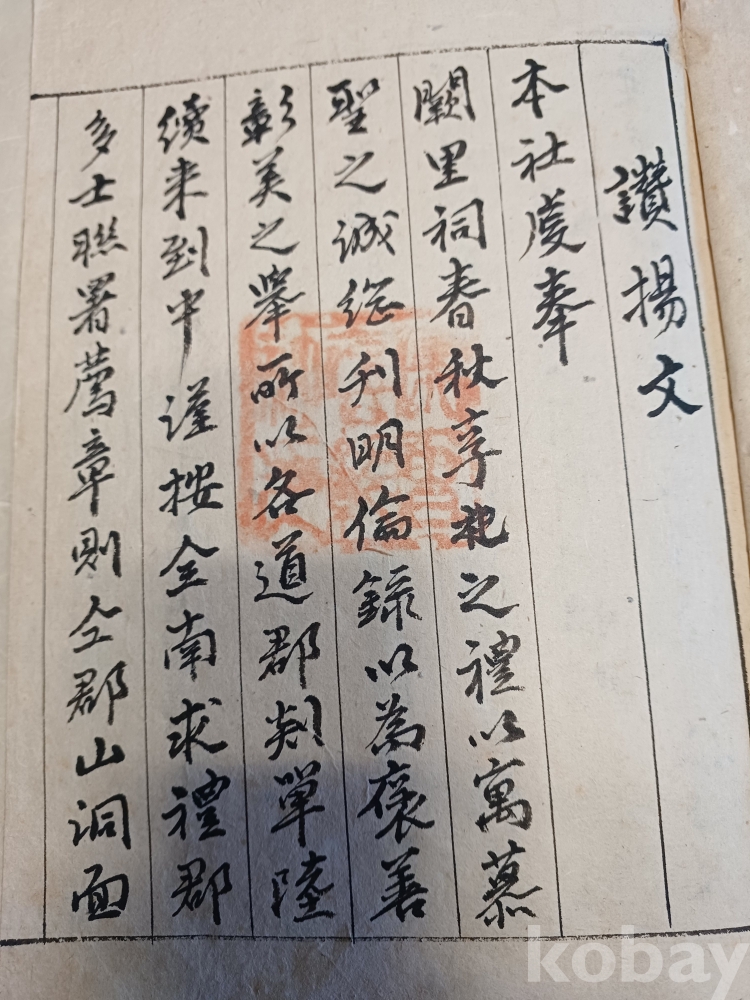 讚揚文
本社慶奉
闕里祠春秋享祀之禮以寓慕
聖之誠繼刊明倫錄以為褒善
彰美之擧所以各道郡剡單陸
續来到中謹按全南求禮郡
多士聯署薦章則仝郡山洞面
kobay